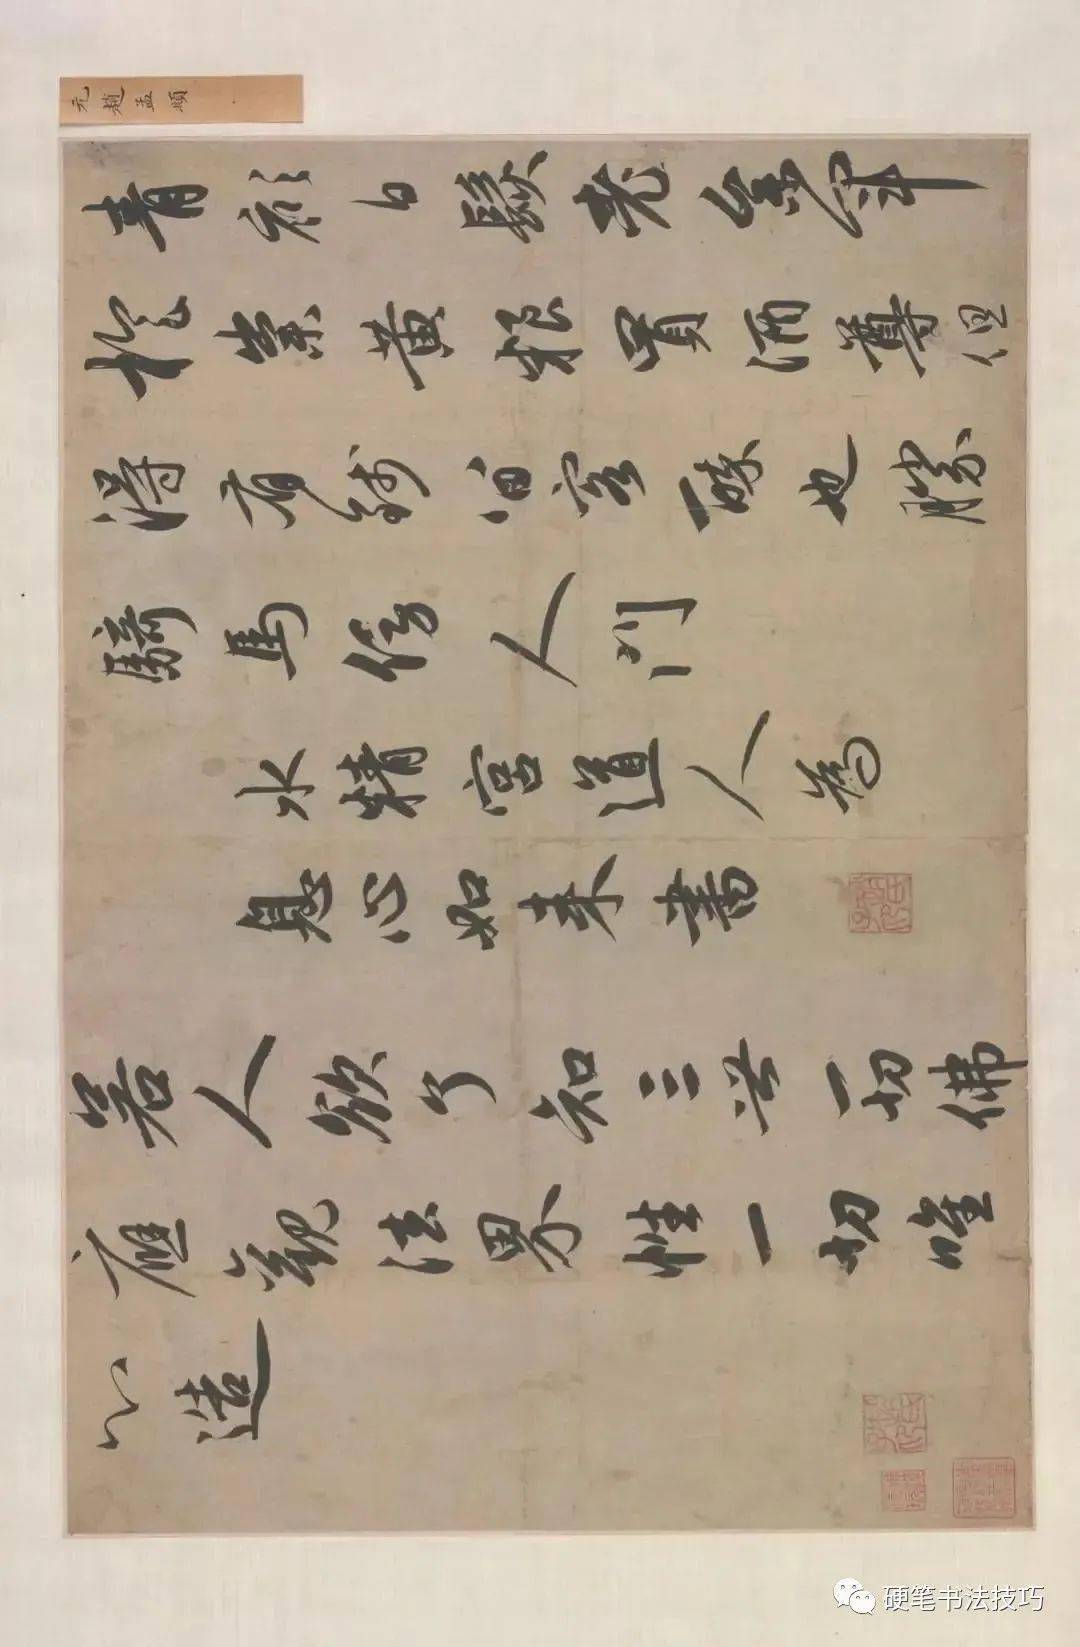 元趙孟頫
青衫白髮老參軍
旋粜黃粮買酒尊但
得有錢留客醉也勝
騎馬傍人門
水精宮道人為
息心如來書
若人欲了知三世一切佛
應觀法界性一切唯
心造
硬笔书法技巧